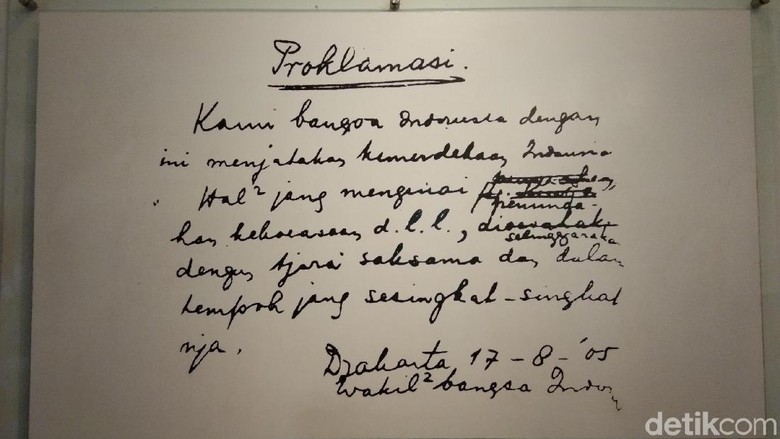 Proklamasi.
Kami bangsa Indonesia dengan
ini menjatakan kemerdekaan Indonesia
Hal² jang mengenai
peminda-
han kekoeasaan d.l.l.,
selenggarakan
dengan tjara saksama dan dalam
tempoh jang sesingkat-singkat
nja.
Djakarta 17-8-'05
Wakil² bangsa
detikcom